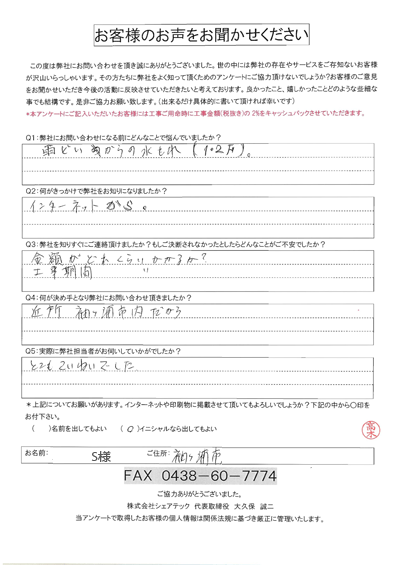 お客様のお声をお聞かせください
この度は弊社にお問い合わせを頂き誠にありがとうございました。世の中には弊社の存在やサービスをご存知ないお客様
が沢山いらっしゃいます。その方たちに弊社をよく知って頂くためのアンケートにご協力頂けないでしょうか?お客様のご意見
をお聞かせいただき今後の活動に反映させていただきたいと考えております。良かったこと、嬉しかったことどのような些細な
事でも結構です。是非ご協力お願い致します。(出来るだけ具体的に書いて頂ければ幸いです)
*本アンケートにご記入いただいたお客様には工事ご用命時に工事金額(税抜き)の 2%をキャッシュバックさせていただきます。
Q1:弊社にお問い合わせになる前にどんなことで悩んでいましたか?
雨どい からの水もれ (1.2F)。
Q2:何がきっかけで弊社をお知りになりましたか?
インターネット から。
Q3:弊社を知りすぐにご連絡頂けましたか?もしご決断されなかったとしたらどんなことがご不安でしたか?
金額がどれくらいかかるか?
工事期間 〃
Q4:何が決め手となり弊社にお問い合わせ頂きましたか?
近所 袖ヶ浦市内だから
Q5:実際に弊社担当者がお伺いしていかがでしたか?
とてもていねいでした
*上記についてお願いがあります。インターネットや印刷物に掲載させて頂いてもよろしいでしょうか?下記の中から〇印を
お付下さい。
( )名前を出してもよい (〇)イニシャルなら出してもよい
お名前: S様 ご住所: 袖ヶ浦市
FAX 0438-60-7774
ご協力ありがとうございました。
株式会社シェアテック 代表取締役 大久保 誠二
当アンケートで取得したお客様の個人情報は関係法規に基づき厳正に管理いたします。